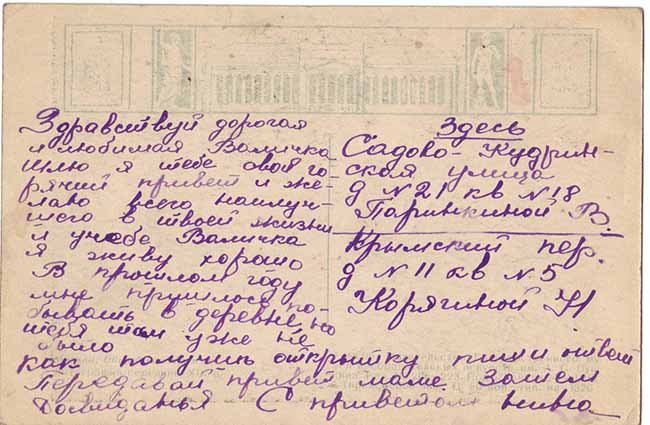 Здравствуй дорогая
и любимая Валичка
шлю я тебе свой го-
рячий привет и же-
лаю всего наилуч-
шего в твоей жизни
и учебе Валичка
я живу хорошо
В прошлом году
мне пришлось по-
бывать в деревне, но
тебя там уже не
было
как получиш открытку пиши ответ
Передавай привет маме. Затем
Досвиданья С приветом Нина
Здесь
Садово-Кудрин-
ская улица
д №21 кв №18
Паринкиной В.
Крымский пер.
д №11 кв №5
Корягиной Н